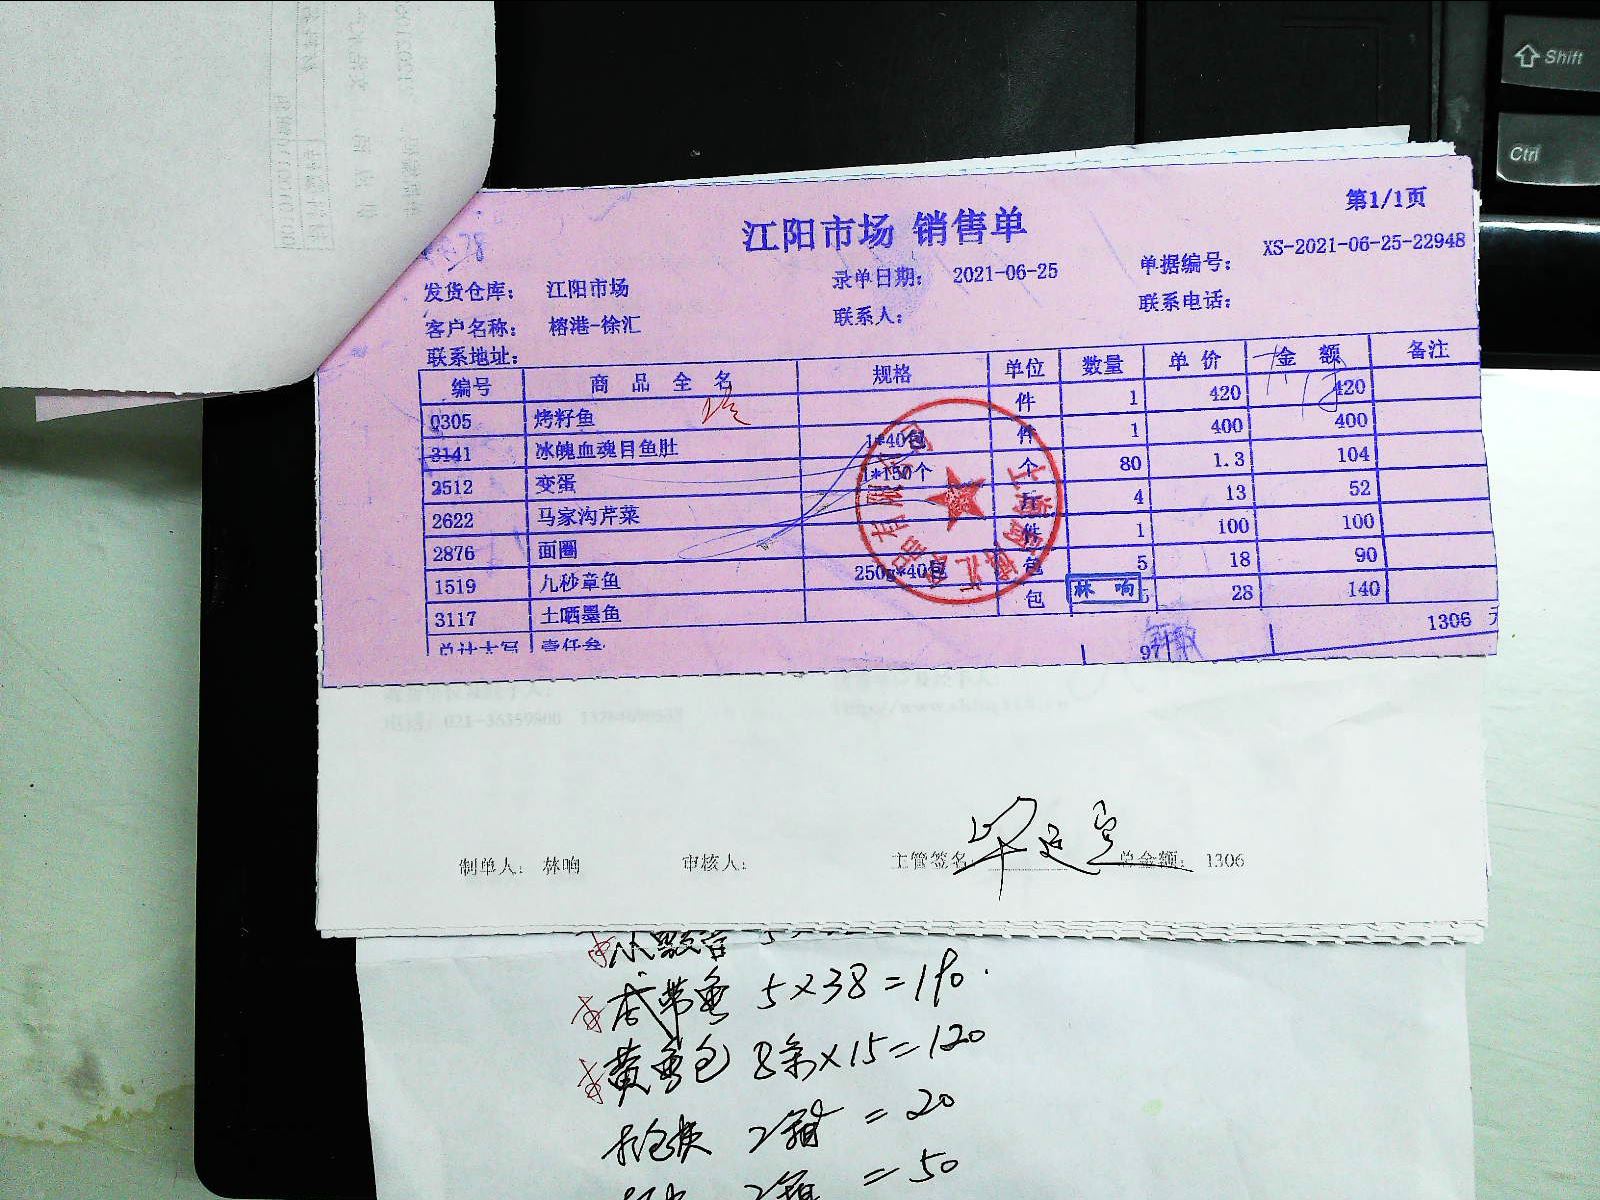 Shift
Ctrl
第1/1页
江阳市场 销售单
发货仓库： 江阳市场 录单日期： 2021-06-25 单据编号： XS-2021-06-25-22948
客户名称： 榕港-徐汇 联系人： 联系电话：
联系地址：
编号 商品全名 规格 单位 数量 单价 金额 备注
0305 烤籽鱼 件 1 420 420
3141 冰魄血魂目鱼肚 1*40包 件 1 400 400
2512 变蛋 1*150个 个 80 1.3 104
2622 马家沟芹菜 斤 4 13 52
2876 面圈 件 1 100 100
1519 儿秒章鱼 250g*40包 包 5 18 90
3117 土晒墨鱼 包 5 28 140
林响
总计大写 壹仟叁 97 1306 元
制单人： 林响 审核人： 主管签名 总金额： 1306
带鱼 5×38=190.
黄鱼包 8条×15=120
2箱 =20
2箱 =50